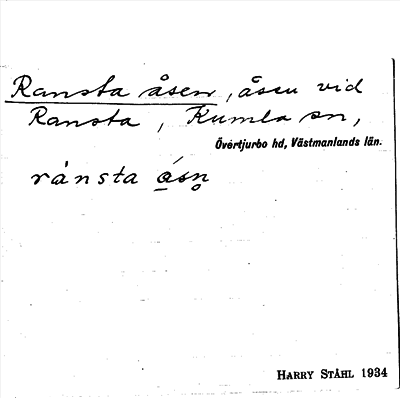 Ransta åsen, åsen vid
Ransta, Kumla sn,
Övertjurbo hd, Västmanlands län.
ránsta ǻ̱sn̥
HARRY STÅHL 1934